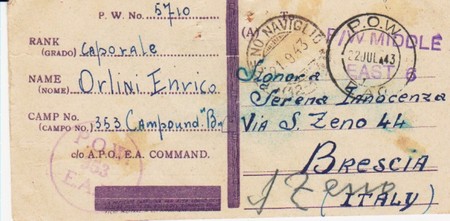 P. W. No. 5710
RANK
(GRADO) Caporale
NAME
(NOME) Orlini Enrico
CAMP No.
(CAMPO NO.) 353 Campound "B"
c/o A.P.O., E.A. COMMAND.
P.O.W.
353
E.A.
To
(A)
P/W MIDDLE
EAST
P.O.W.
22JUL43
E.A.C.
NO NAVIGLIO
Signora
Serena Innocenza
Via S. Zeno 44
Brescia
(ITALY)
S Zeno